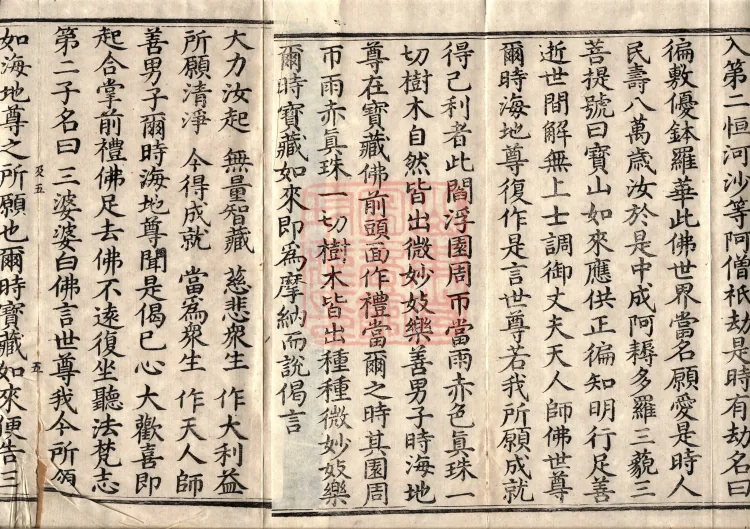 入第二恒河沙等阿僧祇劫是時有劫名曰
徧敷優鉢羅華此佛世界當名願愛是時人
民壽八萬歲汝於是中成阿耨多羅三藐三
菩提號曰寶山如來應供正徧知明行足善
逝世間解無上士調御丈夫天人師佛世尊
爾時海地尊復作是言世尊若我所願成就
得己利者此閻浮園周帀當雨赤色眞珠一
切樹木自然皆出微妙妓樂善男子時海地
尊在寶藏佛前頭面作禮當爾之時其園周
帀雨赤眞珠一切樹木皆出種種微妙妓樂
爾時寶藏如來即爲摩納而說偈言
大力汝起 無量智藏 慈悲衆生 作大利益
所願清淨 今得成就 當爲衆生 作天人師
善男子爾時海地尊聞是偈已心大歡喜即
起合掌前禮佛足去佛不遠復坐聽法梵志
第二子名曰三婆婆白佛言世尊我今所願
及五 五
如海地尊之所願也爾時寶藏如來便告三